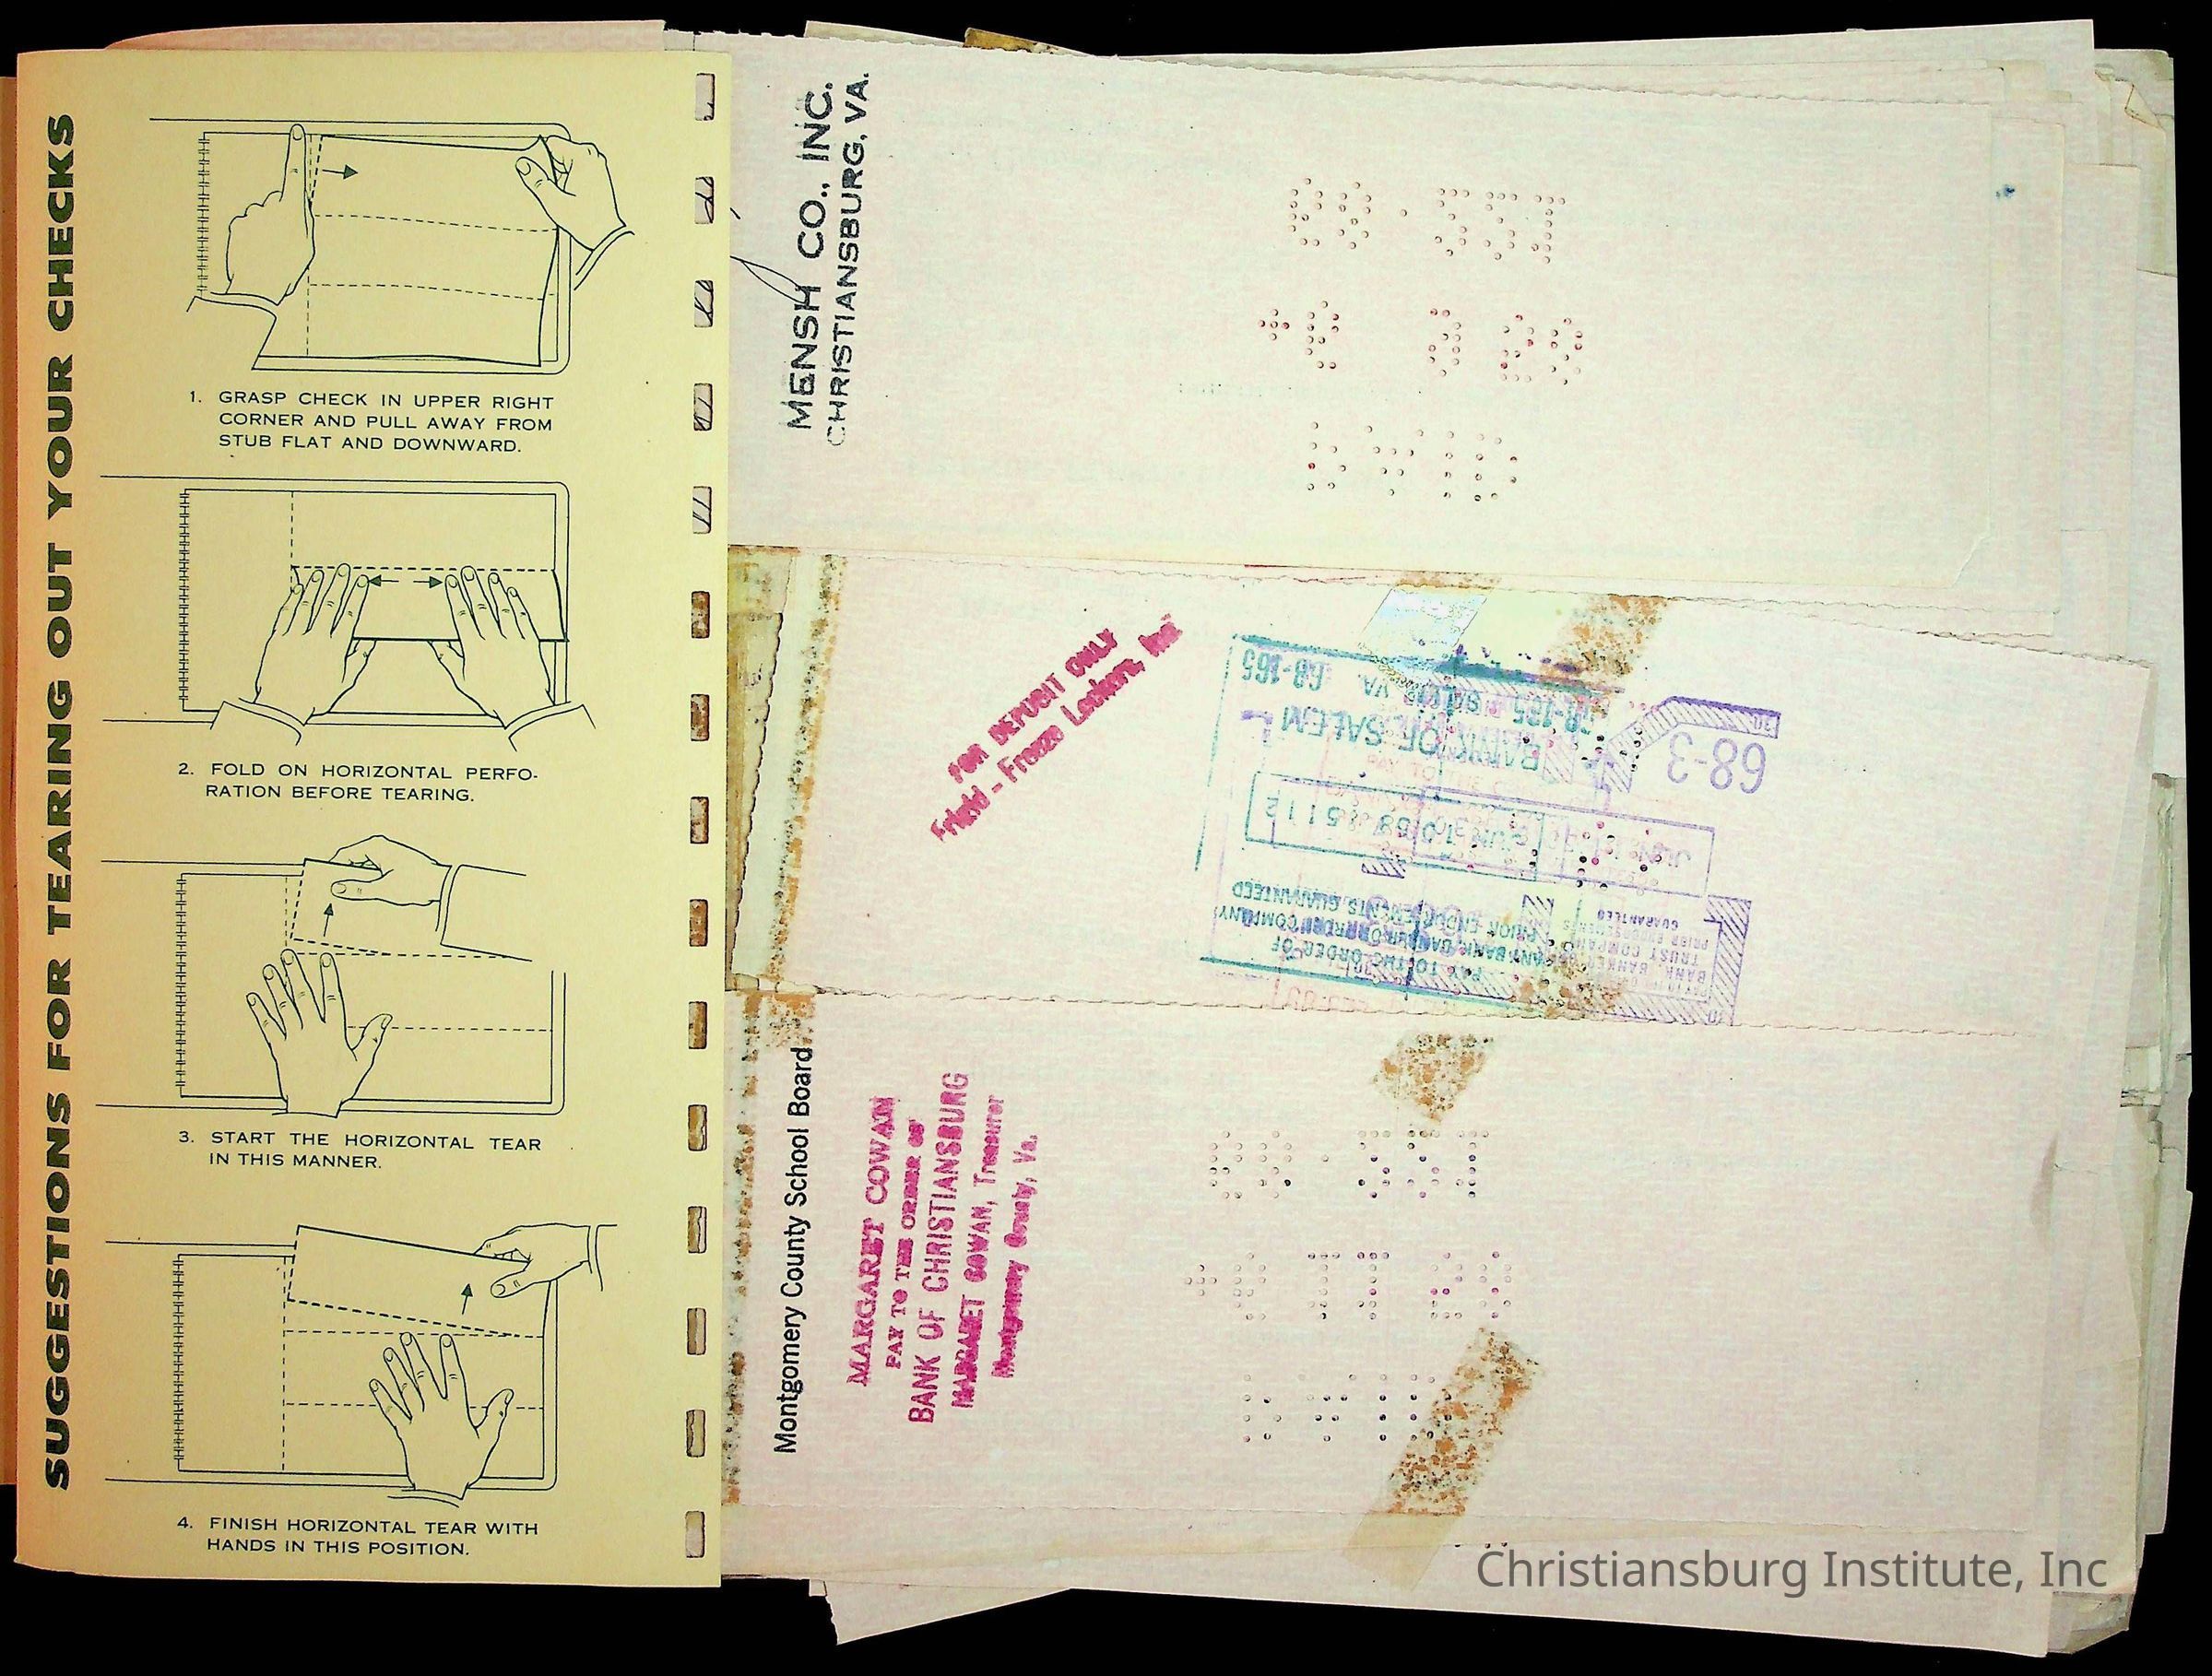 SUGGESTIONS FOR TEARING OUT YOUR CHECKS
1. GRASP CHECK IN UPPER RIGHT
CORNER AND PULL AWAY FROM
STUB FLAT AND DOWNWARD.
2. FOLD ON HORIZONTAL PERFO-
RATION BEFORE TEARING.
3. START THE HORIZONTAL TEAR
IN THIS MANNER.
4. FINISH HORIZONTAL TEAR WITH
HANDS IN THIS POSITION.
MENSH CO., INC.
CHRISTIANSBURG, VA.
FOR DEPOSIT ONLY
Frigid-Freeze Lockers, Inc.
PAY TO THE ORDER OF
ANY BANK, BANKER OR TRUST COMPANY
PRIOR ENDORSEMENTS GUARANTEED
BANK OF SALEM
68-165 SALEM, VA. 68-165
68-3
BANK, BANKER OR
TRUST COMPANY
PRIOR ENDORSEMENTS
GUARANTEED
Montgomery County School Board
MARGARET COWAN
PAY TO THE ORDER OF
BANK OF CHRISTIANSBURG
MARGARET COWAN, Treasurer
Montgomery County, Va.
Christiansburg Institute, Inc